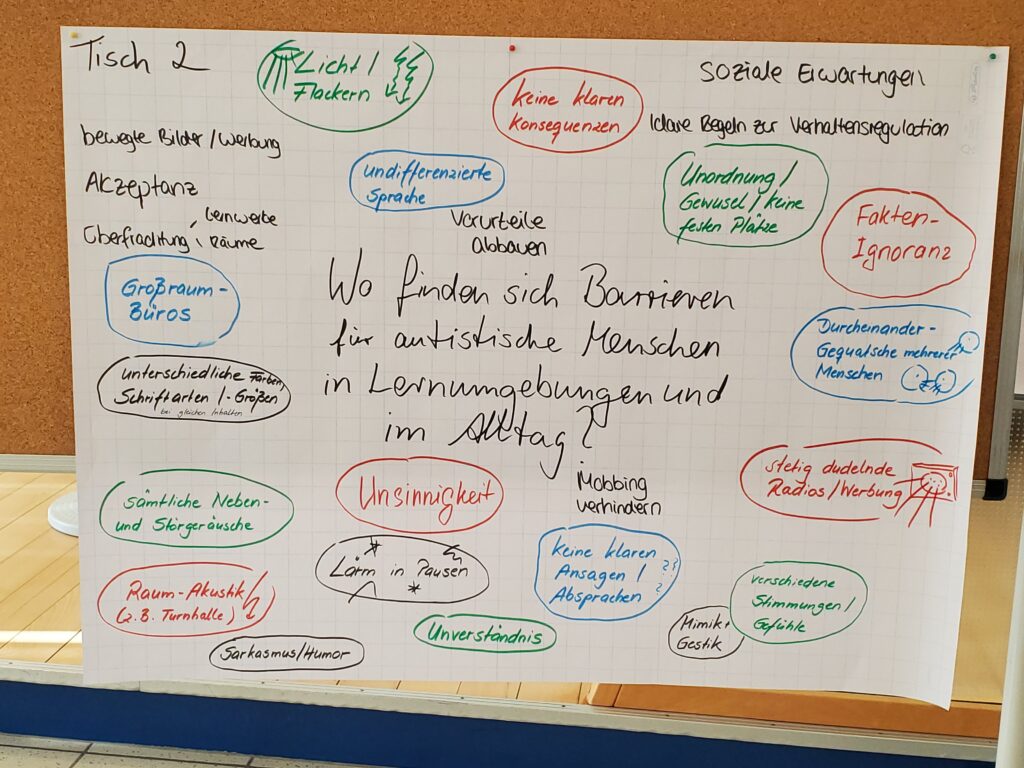 Tisch 2
Licht /
Flackern
keine klaren
Konsequenzen
Soziale Erwartungen
klare Regeln zur Verhaltensregulation
bewegte Bilder / Werbung
undifferenzierte
Sprache
Unordnung /
Gewusel / keine
festen Plätze
Akzeptanz
Vorurteile
abbauen
Fakten-
Ignoranz
Lernwerbe
Überfrachtung, Räume
Großraum-
Büros
Wo finden sich Barrieren
für autistische Menschen
in Lernumgebungen und
im Alltag?
Durcheinander-
Gequatsche mehrerer
Menschen
unterschiedliche Farben,
Schriftarten / -Größen
bei gleichen Inhalten
sämtliche Neben-
und Störgeräusche
Unsinnigkeit
Mobbing
verhindern
stetig dudelnde
Radios/Werbung
Lärm in Pausen
keine klaren
Ansagen /
Absprachen
???
Raum-Akustik
(z.B. Turnhalle)
verschiedene
Stimmungen /
Gefühle
Unverständnis
Mimik +
Gestik
Sarkasmus/Humor